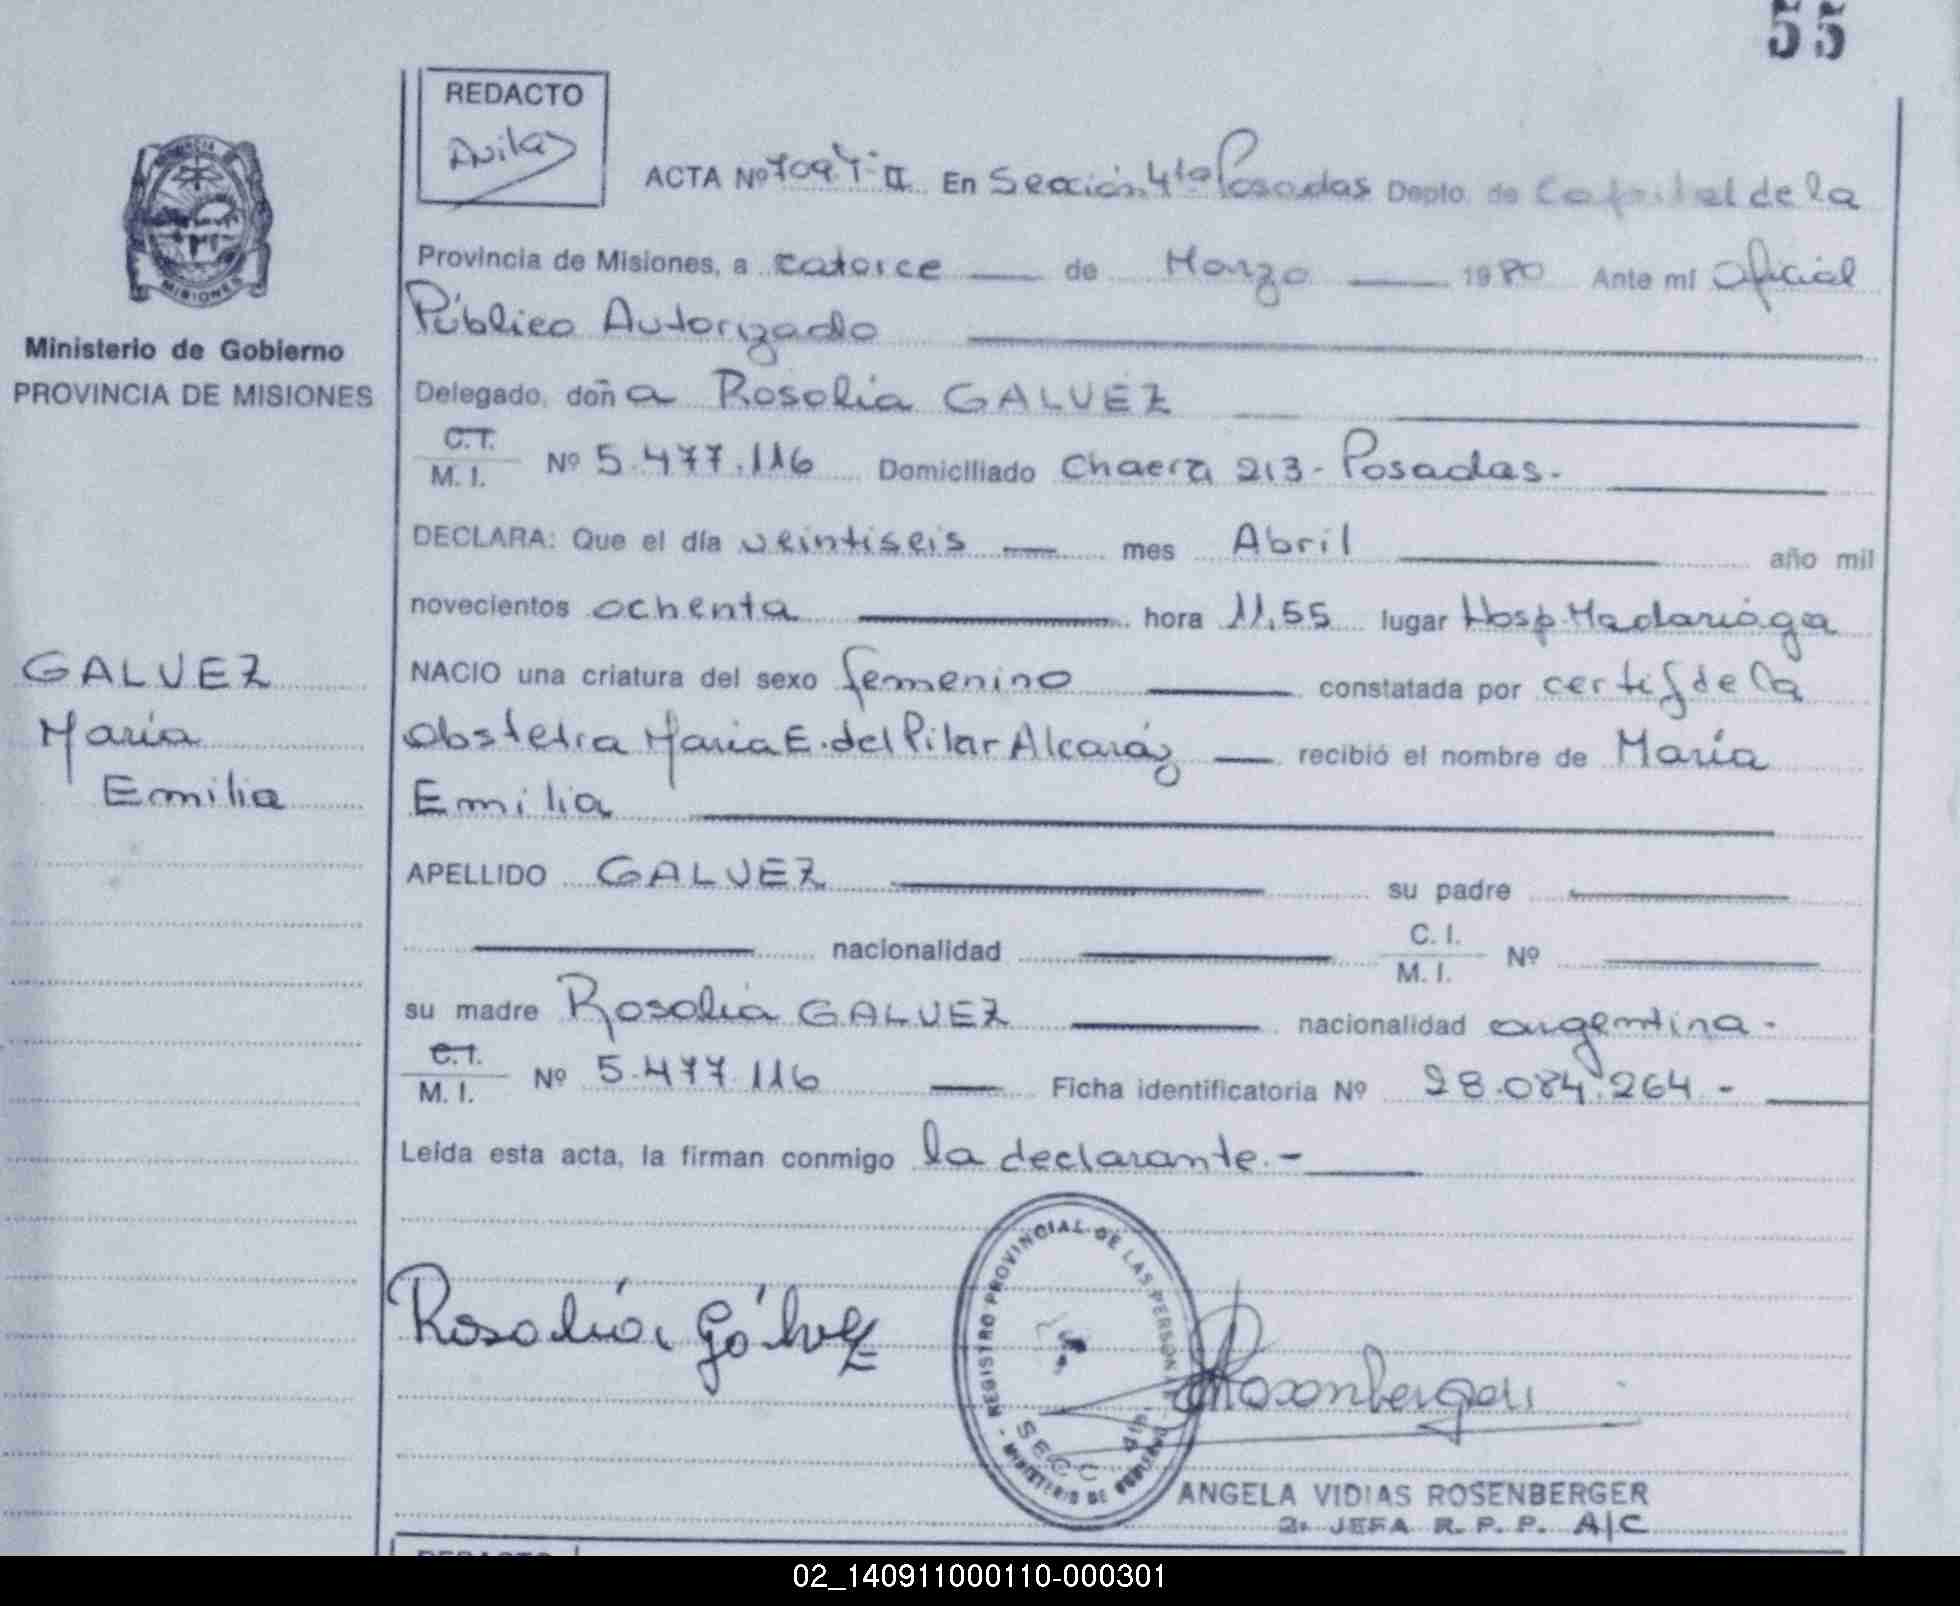 55
REDACTO
Avila
ACTA Nº 1097-II En Sección 4ta Posadas Depto. de Capital de la
Provincia de Misiones, a catorce de Marzo 1980 Ante mí Oficial
Público Autorizado
Ministerio de Gobierno
PROVINCIA DE MISIONES
Delegado, doña Rosalia GALVEZ
C.I.
M. I. Nº 5.477.116 Domiciliado Chacra 213 - Posadas.
DECLARA: Que el día veintiseis mes Abril año mil
novecientos ochenta hora 11,55 lugar Hosp. Madariaga
GALVEZ
María
Emilia
NACIO una criatura del sexo femenino constatada por certif de la
obstetra Maria E. del Pilar Alcaráz recibió el nombre de María
Emilia
APELLIDO GALVEZ su padre
nacionalidad C. I.
M. I. Nº
su madre Rosalia GALVEZ nacionalidad argentina.
C.I.
M. I. Nº 5.477.116 Ficha identificatoria Nº 28.084.264 -
Leída esta acta, la firman conmigo la declarante.-
Rosalía Gálvez
REGISTRO PROVINCIAL DE LAS PERSONAS
SECC 4ta
MINISTERIO DE GOBIERNO
Rosenberger
ANGELA VIDIAS ROSENBERGER
2ª JEFA R. P. P. A/C
REDACTO
02_140911000110-000301